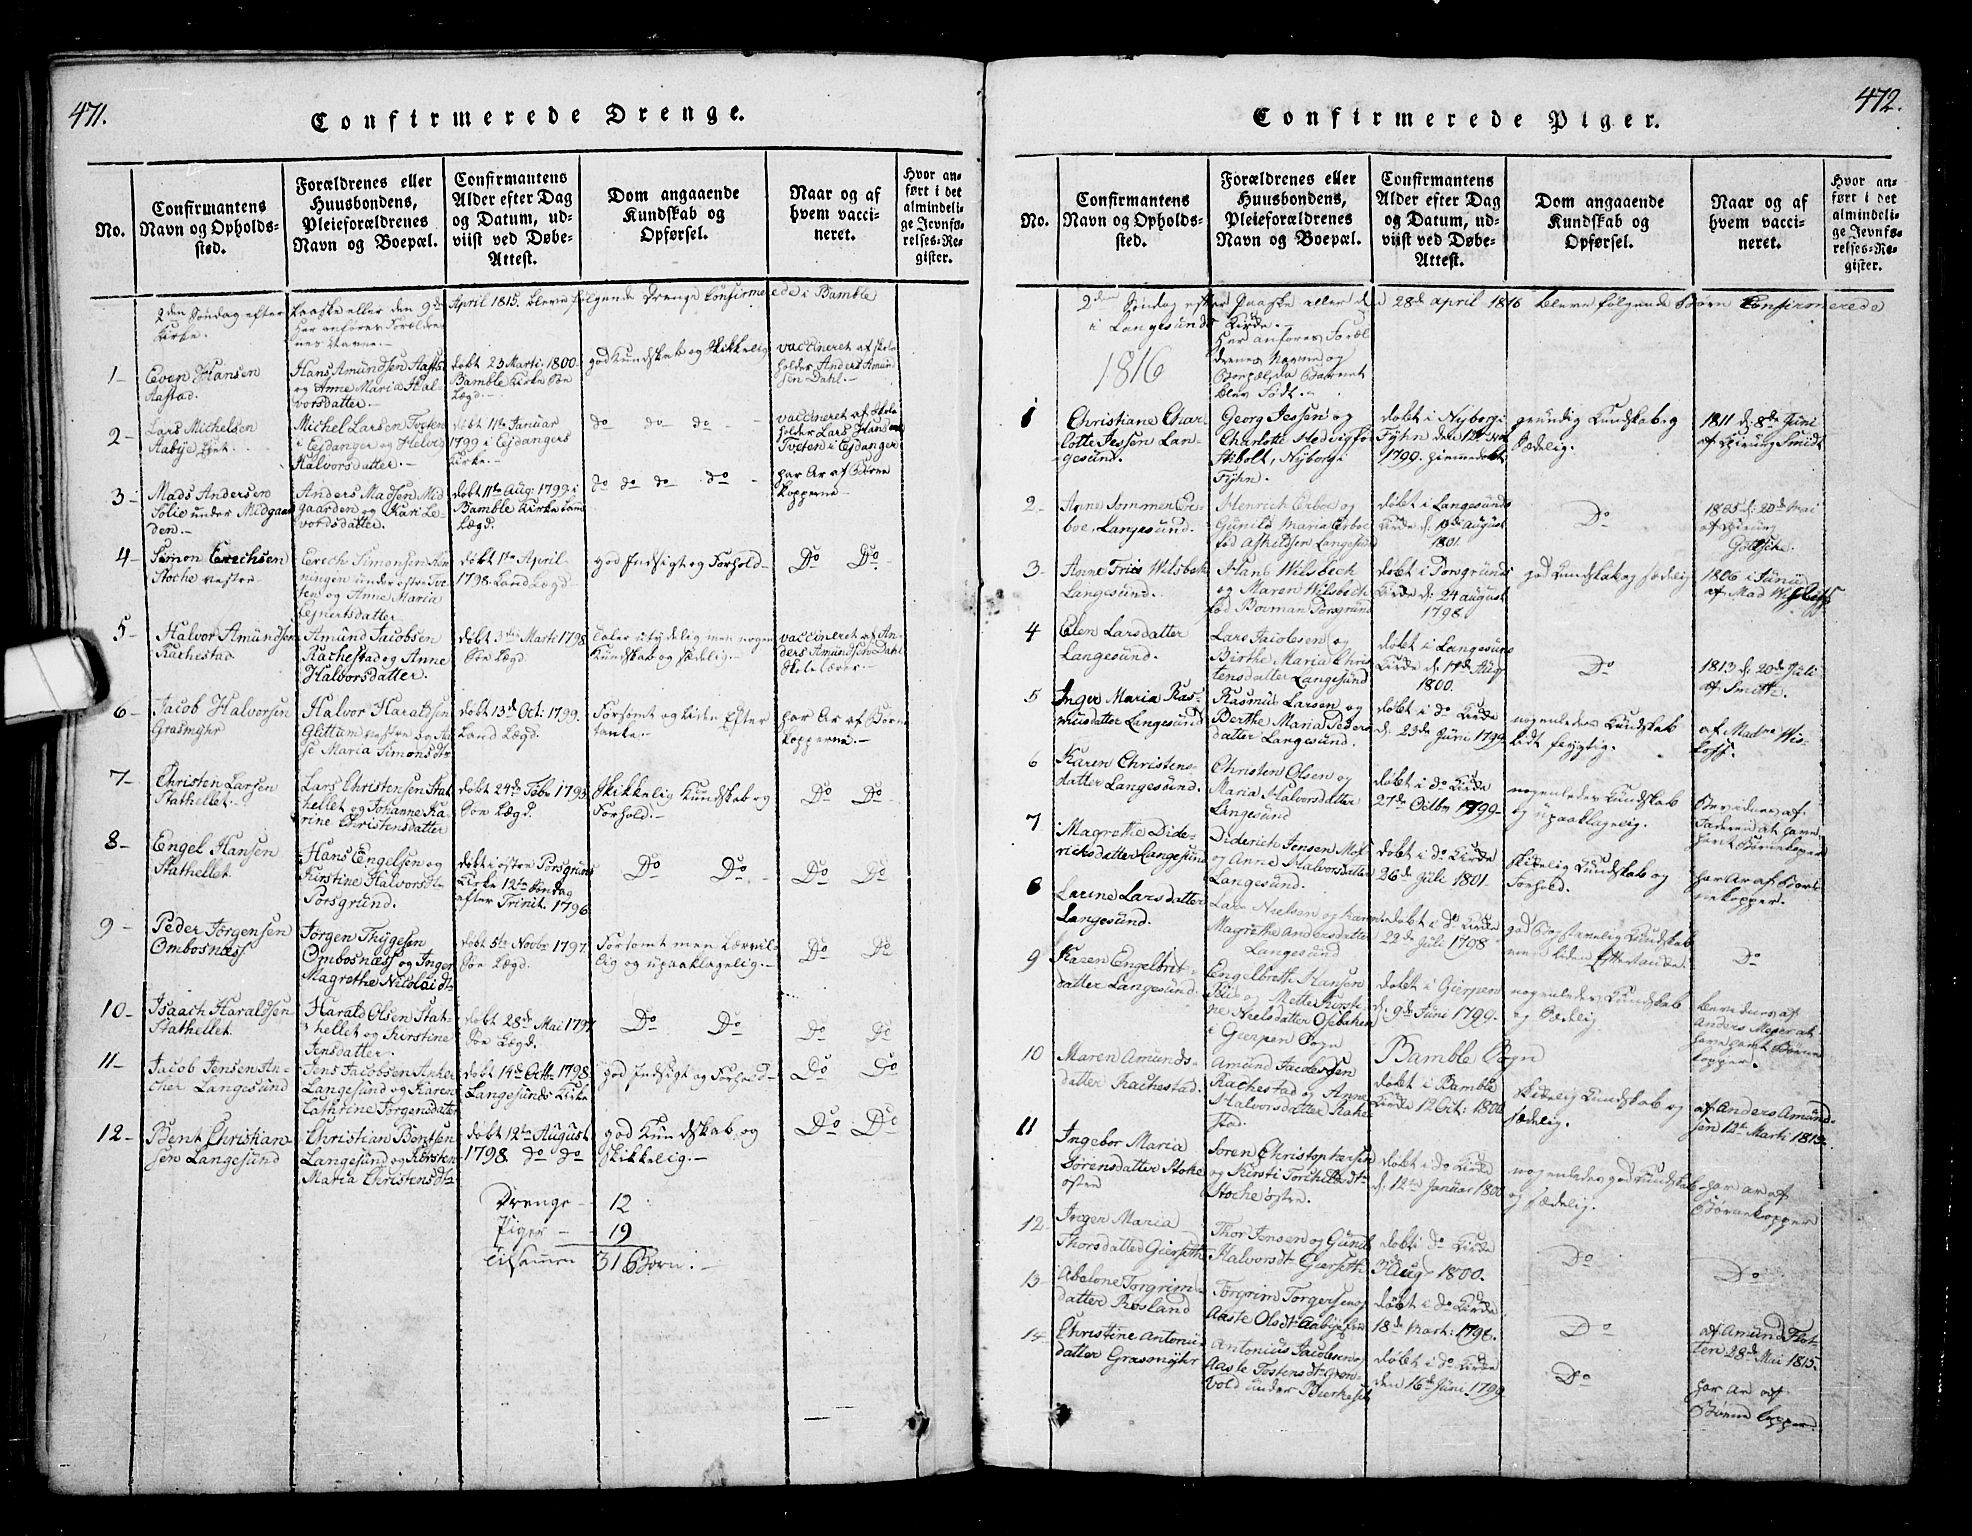 471.
Confirmerede Drenge.
No.
Confirmantens
Navn og Opholds-
sted.
Forældrenes eller
Huusbondens,
Pleieforældrenes
Navn og Boepæl.
Confirmantens
Alder efter Dag
og Datum, ud-
viist ved Døbe-
Attest.
Dom angaaende
Kundskab og
Opførsel.
Naar og af
hvem vacci-
neret.
Hvor an-
ført i det
almindeli-
ge Jevnfø-
relses-Re-
gister.
2den Søndag efter Paaske eller den 9de April 1815. bleve følgende Drenge Confirmerede i Bamble
Kirke.
her anføres Foreldre
nes Navne.-
1-
Even Hansen
Aastad.
Hans Amundsen Aastad
og Anne Maria Hal-
vorsdatter.-
døbt 23 Marti 1800.
Bamble Kirke Søe
Lægd.-
god Kundskab og Skikkelig
vaccineret af skole
holder Anders Amund
sen Dahl.-
2-
Lars Michelsen
Aabye
Michel Larsen Tveten
i Ejdanger og Helvig
Halvorsdatter.-
døbt 11te Januar
1799 i Ejdangers
Kirke.-
do do do -
vaccineret af Skole
holder Lars Hansen
Tveten i Ejdanger
3-
Mads Andersen
Solie under Midgaar
den.-
Anders Madsen Mid
gaarden og Kari Le-
vordsdatter.
døbt 11te Aug: 1799 i
Bamble Kirke Land
Lægd.
do do do do -
har Ar af Børne
kopperne-
4-
Simon Erechsen
Stoche vestre
Erech Simonsen
ningen under østre Tve
ten og Anne Maria
Lejnertsdatter.
døbt 1te April
1798. Land Lægd
god Indsigt og Forhold-
Do Do
5-
Halvor Amundsen
Rachestad.
Amund Jacobsen
Rachestad og Anne
Halvorsdatter.
døbt 3die Marti 1798
Søe Lægd.-
taler utydelig men nogen
Kundskab og sædelig.-
vaccineret af An-
ders Amundsen Dahl
Skolelærer.-
6-
Jacob Halvorsen
Grasmyhr
Halvor Haraldsen
Glittum vestre og
Maria Simonsdtr
døbt 13de Oct: 1799.
Land Lægd.-
Forsømt og Liden Efter
tanke.-
har Ar af Børne
kopperne.-
7-
Christen Larsen
Stathellet.-
Lars Christensen Stat
hellet og Johanne Ka
rine Christensdatter
døbt 24de Febr 1793.
Søe Lægd.
Skikkelig Kundskab og
Forhold.-
Do Do
8-
Engel Hansen
Stathellet
Hans Engelsen og
Kirstine Halvorsdt
Porsgrund.
døbt i østre Porsgrunds
Kirke 12te Søndag
efter Trinit. 1796.
Do Do
Do Do
9-
Peder Jørgensen
Ombosnæss
Jørgen Thygesen
Ombosnæss og Inger
Magrethe Nicolaidt
døbt 5te Novbr 1797.
Søe Lægd.
Forsømt men Lærvil
lig og upaaklagelig.-
Do Do
10-
Isaach Haraldsen
Stathellet.
Harald Olsen Stat-
hellet og Kirstine
Jensdatter.
døbt 28de Mai 1797.
Søe Lægd.
Do Do
Do Do
11-
Jacob Jensen An-
cher Langesund
Jens Jacobsen Anker
Langesund og Karen
Cathrine Jørgensdatter
døbt 14de Octbr 1798.
Langesunds Kirke
god Indsigt og Forhold-
Do Do
12-
Bent Christian-
sen Langesund
Christian Bentsen
Langesund og Kirsten
Maria Christensdtr
døbt 12te August
1798. do do
god Kundskab og
Skikkelig.-
Do Do
Drenge- 12
Piger- 19
tilsamen 31 Børn.-
472.
Confirmerede Piger.
No.
Confirmantens
Navn og Opholds-
sted.
Forældrenes eller
Huusbondens,
Pleieforældrenes
Navn og Boepæl.
Confirmantens
Alder efter Dag
og Datum, ud-
viist ved Døbe-
Attest.
Dom angaaende
Kundskab og
Opførsel.
Naar og af
hvem vacci-
neret.
Hvor an-
ført i det
almindeli-
ge Jevnfø-
relses-Re-
gister.
2den Søndag efter Paaske eller den 28de april 1816 bleve følgende Børn Confirmerede
i Langesunds Kirke.
1816
Her anføres Foræl
drenes Navne og
Boepæl, da Barnet
blev Født.-
1
Christiane Char
lotte Jessen Lan-
gesund.
Georg Jessen og
Charlotte Hedvig fød
Stibolt, Nyborg i
Fyhn.
døbt i Nyborg i
Fyhn den 12te
1799. hiemedøbt
grundig Kundskab og
Sædelig.
1811 d. 8de Juni
af Chirurg. Smidt
2-
Anne Sommer Er
boe, Langesund.
Henrich Erboe og
Gunild Maria Erboe
fød Askildsen Langesund
døbt i Langesunds
Kirke d. 19de August
1801.
Do
1805 d. 20de Mai
af Chirurg
Göttsche.
3-
Anne Wilsbech
Langesund.
Hans Wilsbech
og Maren Wilsbech
fød Boeman Porsgrund
døbt i Porsgrunds
Kirke d. 24 august
1798.
god Kundskab og sædelig
1806 i Junii
af Mad
4
Elen Larsdatter
Langesund.
Lars Jacobsen og
Birthe Maria Chris
tensdatter Langesund
døbt i Langesunds
Kirke d. 17de Aug
1800.
Do
1813 d. 20de Juli
af Smitte.
5
Inger Maria Ras-
musdatter Langesund
Rasmus Larsen og
Berthe Maria Peders
datter Langesund.
døbt i do Kirke
d. 23de Juni 1799
nogenledes Kundskab
lidt flygtig.
af Madme Wis-
loff.
6
Karen Christens-
datter Langesund.
Christen Olsen og
Maria Halvorsdatter
Langesund
døbt i do Kirke
27de Octbr 1799-
nogenledes Kundskab
og upaaklagelig.
Bevidnes af
Faderen at have
havt Børnekopper
7
Magrethe Dide-
richsdatter Langesund
Diderich Jensen
og Anne Halvorsdatter
Langesund.
døbt i do Kirke
26de Juli 1801.
skikkelig Kundskab og
Forhold.
har ar af Bør-
nekopper.
8
Larine Larsdatter
Langesund.
Lars Nielsen og Karen
Magrethe Andersdatter
Langesund
døbt i do Kirke
22de Juli 1798
men liden Eftertanke.
Do
9
Karen Engelbret-
datter Langesund.
Engelbreth Hansen
og Mette Kirsti-
ne Neelsdatter Osebakken
i Gierpen Sogn
døbt i Gierpen
d. 9de Juni 1799.
nogenledes Kundskab
og Sædelig
bevidnes af
Anders Meyer at
have havt Børne
kopper.
Bamble Sogn
10
Maren Amunds-
datter Rachestad.
Amund Jacobsen
Rachestad og Anne
Halvorsdatter Rache
stad.
døbt i Bamble
Kirke 12 Oct: 1800
skikkelig Kundskab og
sædelig.
af Anders Amund-
sen 12te Marti 1813.
11
Ingebor Maria
Sørensdatter Stoke
østre
Søren Christophersen
og Kirsti Torchildsdt
Stoche østre.
døbt i do Kirke
d. 12te Januar 1800
nogenledes god Kundskab
og sædelig.
har ar af
Børnekopper
12.
Inger Maria
Thorsdatter Gierseth
Thor Jensen og Gunil
Halvorsdt Gierseth.
døbt i do Kirke
3 Aug 1800.
Do
Do
13
Abelone Torgrim-
datter Røsland
Torgrim Torgersen og
Aaste Olsdt Aabye
døbt i do Kirke
18de Mart: 1798.
Do
af Amund
28de Mai 1815.
14
Christine Antonii-
datter Grasmyhr
Antonius Jacobsen og
Aaste Tostensdt Grøn-
vold under Bierkeset
døbt i do Kirke
den 16de Juni 1799
Do
har ar af
Børnekopper